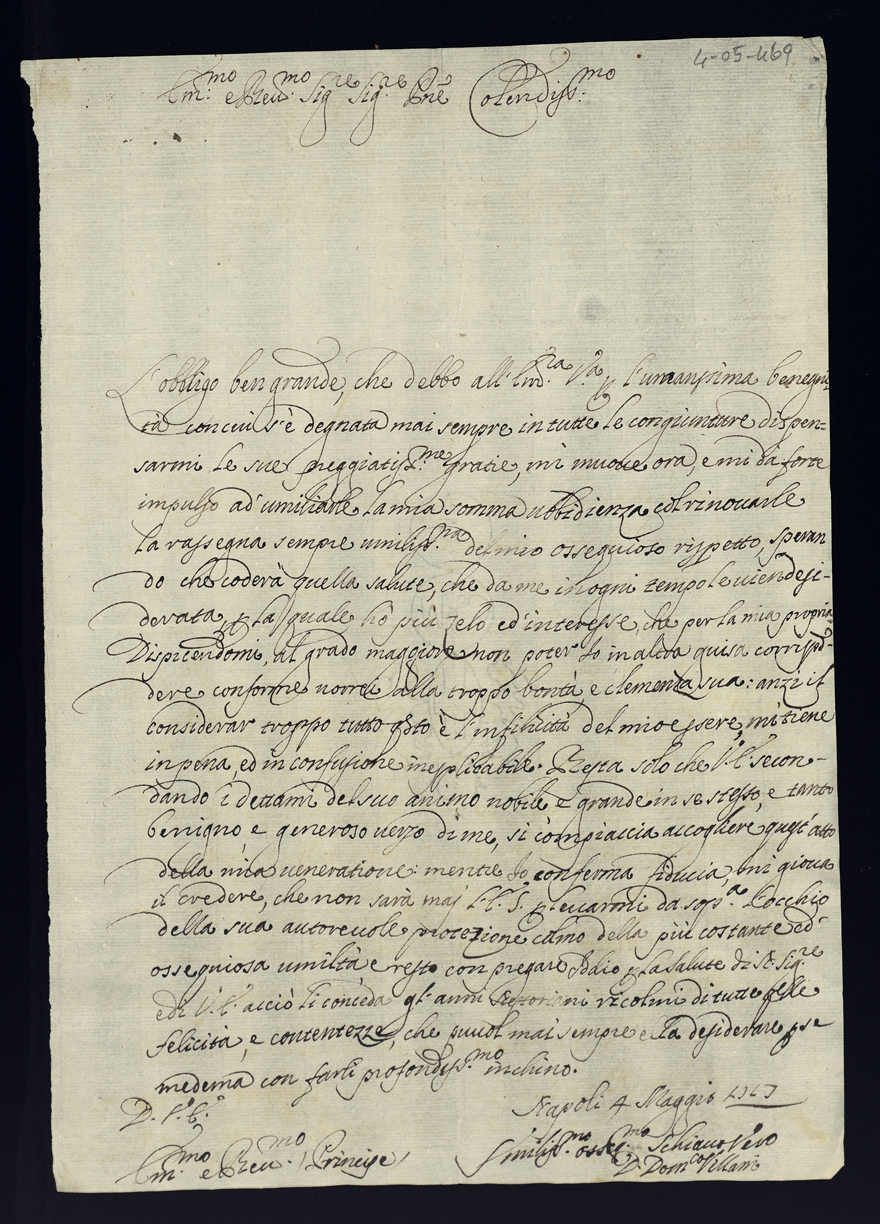 4-05-469
Em.mo e Reu.mo Sig.re Sig.re Pne Colendiss.mo
L'obbligo ben grande, che debbo all'Em.za V.a p l'umanissima benegni=
tà concui s'è degnata mai sempre in tutte le congiunture dispen=
sarmi le sue preggiatiss.me gratie, mi muove ora, e mi dà forte
impulso ad'umiliarle la mia somma ubbidienza col rinouarle
la rassegna sempre umiliss.ma del mio ossequioso rispetto, speran
do che goderà quella salute, che da me in ogni tempo le uien desi-
derata, p la quale hò più zelo ed'interesse, che per la mia propria
Dispicendomi, al grado maggiore non poter Io in altra guisa corrispō-
dere conforme uorrei alla troppo bontà, e clemenza sua: anzi il
considerar troppo tutto qsto è l'infelicità del mio essere, mi tiene
in pena, ed in confusione inesplicabile. Resta solo che V.E. secon-
dando i dettami del suo animo nobile e grande in se stesso, e tanto
benigno, e generoso uerso di me, si compiaccia accogliere quest'atto
della mia ueneratione: mentre Io con ferma fiducia, mi gioua
il credere, che non sarà mai p leuarmi da sop.a l'occhio
della sua autoreuole protezione colmo della più costante ed'
ossequiosa umiltà e resto con pregare Iddio p la salute di N. Sig.re
e di V.E. acciò li conceda gl'anni Nestoriani ricolmi di tutte qlle
felicità, e contentezze, che puuol mai sempre ella desiderare p se
medema con farli profondiss.mo inchino.
D. V. E.
Napoli 4 Maggio
Em.mo e Reu.mo Principe
Umiliss.mo osseq.mo Schiauo Vero
D. Dom.co Villani